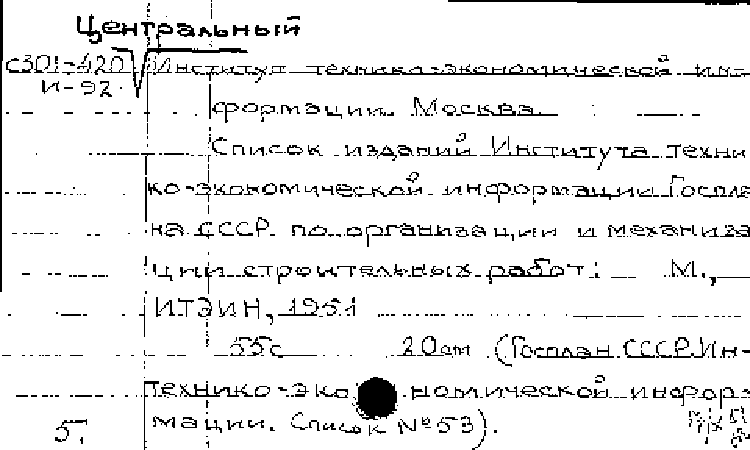 Центральный
С301-420 Институт технико-экономической ин-
И-92. формации. Москва.
Список изданий Института техни
ко-экономической информации Госпла
на СССР. по организации и механиза
ции строительных работ: М.,
ИТЭИН, 1951
55с 20см (Госплан СССР. Ин-
технико-экономической информ
5. мации. Список №53).